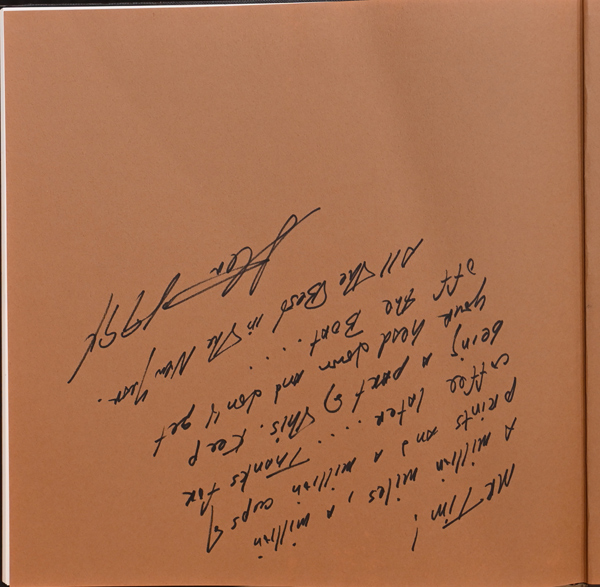 MR Tim!
A million miles, a million
prints and a million cups of
coffee later .... Thanks for
being a part of This. Keep
your head down and don't get
off the Boat ....
All The Best in The New Year.